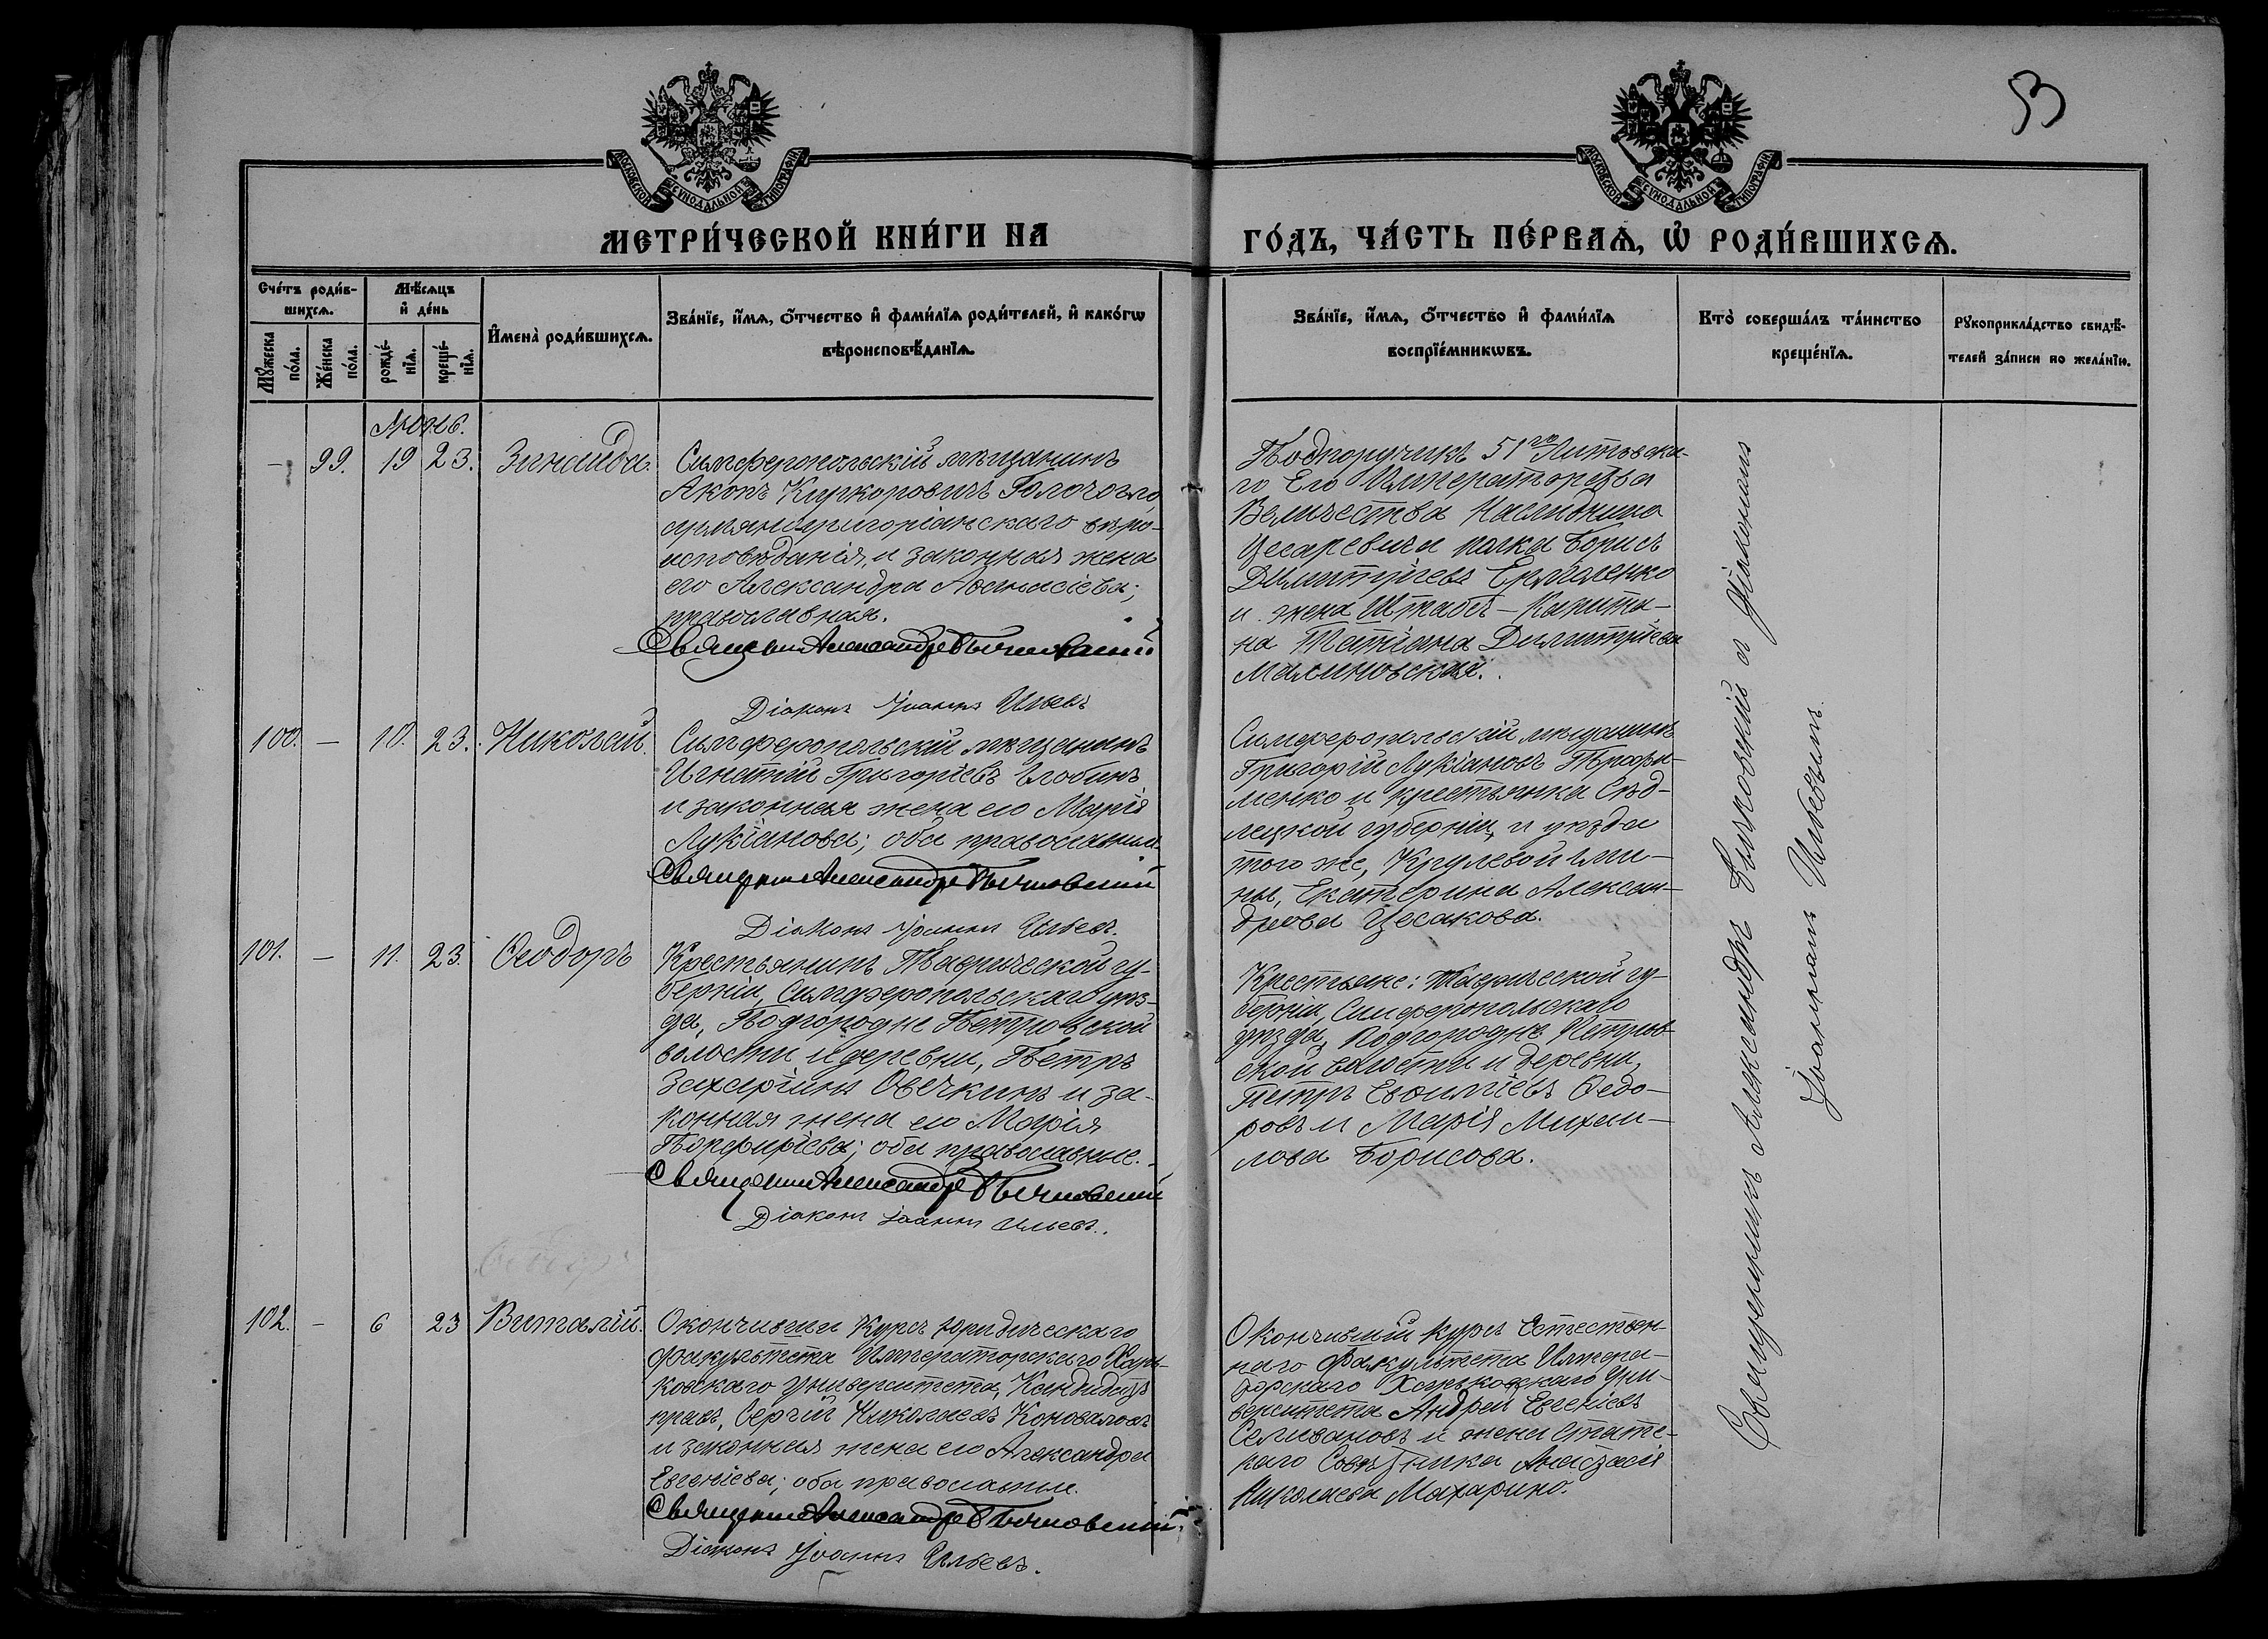 53
МОСКОВСКОЙ СѴНОДАЛЬНОЙ ТИПОГРАФІИ
МОСКОВСКОЙ СѴНОДАЛЬНОЙ ТИПОГРАФІИ
МЕТРИ́ЧЕСКОЙ КНИ́ГИ НА
ГО́ДЪ, ЧА́СТЬ ПЕ́РВАѦ, Ѡ҆ РОДИ́ВШИХСѦ.
Сче́тъ роди́в-
шихсѧ.
Мꙋ́жеска
по́ла.
Же́нска
по́ла.
Мѣ́сѧцъ
и҆ де́нь
рожде́-
нїѧ.
креще́-
нїѧ.
И҆мена̀ роди́вшихсѧ.
Зва́нїе, и҆́мѧ, ѻ҆́тчество и҆ фами́лїѧ роди́телей, и҆ како́гѡ
вѣроисповѣ́данїѧ.
Зва́нїе, и҆́мѧ, ѻ҆́тчество и҆ фами́лїѧ
воспрїе́мникѡвъ.
Кто̀ соверша́лъ та́инство
креще́нїѧ.
Рꙋкоприкла́дство свидѣ́-
телей за́писи по жела́нїю.
Іюнь.
— 99. 19 23. Зинаида.
Симферопольскій мѣщанинъ
Акопъ Киркоровичъ
армяногригоріанскаго вѣро-
исповѣданія, и законная жена
его Александра Аѳанасіева;
православная.
Священникъ Александръ Бычковскій
Діаконъ Іоаннъ Ильевъ
Подпоручикъ 51го Литовска-
го Его Императорскаго
Величества Наслѣдника
Цесаревича полка Борисъ
Димитріевъ Ермоленко
и жена Штабсъ-Капита-
на Татіана Димитріева
Малиновская.
100. — 10. 23. Николай.
Симферопольскій мѣщанинъ
Игнатій Григоріевъ
и законная жена его Марія
Лукіанова; оба православные.
Священникъ Александръ Бычковскій
Діаконъ Іоаннъ Ильевъ.
Симферопольскій мѣщанинъ
Григорій Лукіановъ Трофи-
менко и крестьянка Сѣд-
лецкой губерніи, и уѣзда
того же, гми-
ны, Екатерина Алексан-
дрова Цесакова.
101. — 11. 23. Ѳеодоръ
Крестьянинъ Таврической гу-
берніи, Симферопольскаго уѣз-
да, Подгородне Петровской
волости и деревни, Петръ
Захаріинъ Овечкинъ и за-
конная жена его Марія
Порфиріева; оба православные.
Священникъ Александръ Бычковскій
Діаконъ Іоаннъ Ильевъ.
Крестьяне: Таврической гу-
берніи, Симферопольскаго
уѣзда, Подгородне Петров-
ской волости и деревни,
Петръ Евѳиміевъ Ѳедо-
ровъ и Марія Михаи-
лова Борисова.
102. — 6 23 Виталій.
Окончившій курсъ юридическаго
факультета Императорскаго Харь-
ковскаго университета, Кандидатъ
правъ, Сергій Николаевъ Коноваловъ
и законная жена его Александра
Евгеніева; оба православные.
Священникъ Александръ Бычковскій.
Діаконъ Іоаннъ Ильевъ.
Окончившій курсъ Естествен-
наго факультета Импера-
торскаго Харьковскаго Уни-
верситета Андрей Евгеніевъ
Селивановъ и жена Статс-
каго Совѣтника Анастасія
Николаева Махарино.
Священникъ Александръ Бычковскій с Діакономъ
Іоанномъ Ильевымъ.